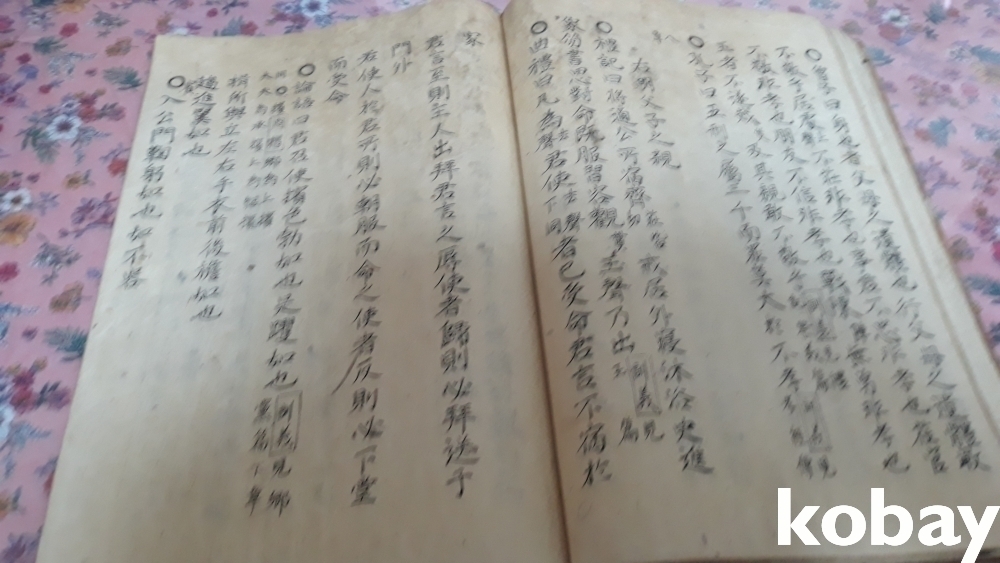 ○曾子曰身也者父母之遺體也行父母之遺體敢
不敬乎居處不莊非孝也事君不忠非孝也莅官
不敬非孝也朋友不信非孝也戰陳無勇非孝也
五者不遂烖及其親敢不敬乎
○孔子曰五刑之屬三千而罪莫大於不孝
右明父子之親
○禮記曰將適公所宿齊戒居外寢沐浴史進
象笏書思對命旣服習容觀玉聲乃出
○曲禮曰凡為君使者已受命君言不宿於
家
君言至則主人出拜君言之辱使者歸則必拜送于
門外
若使人於君所則必朝服而命之使者反則必下堂
而受命
○論語曰君召使擯色勃如也足躍如也 見鄕黨篇下章
揖所與立左右手衣前後襜如也
趨進翼如也
○入公門鞠躬如也如不容
kobay